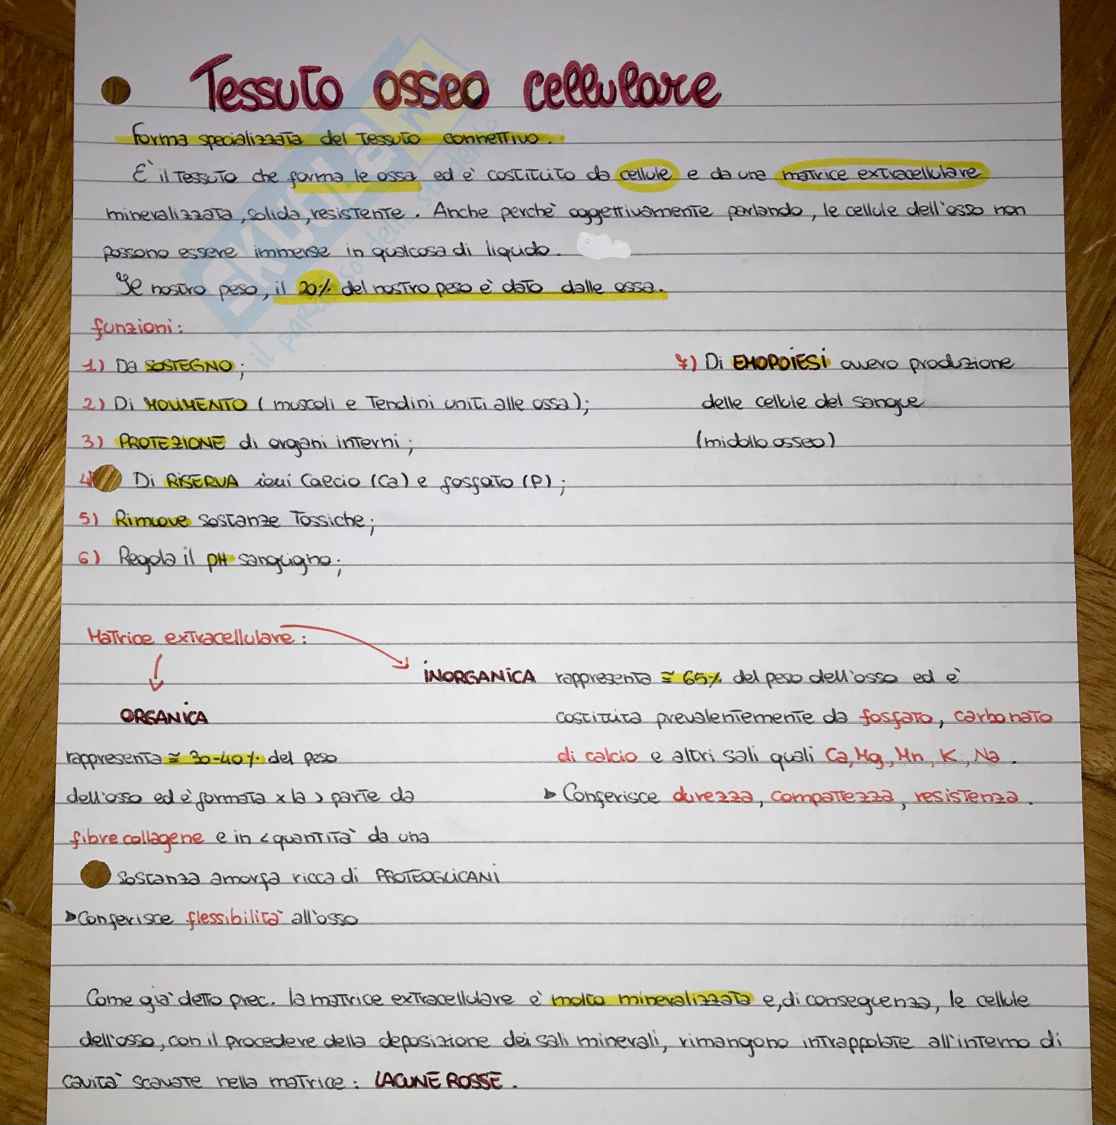 Tessuto osseo cellulare
Forma specializzata del tessuto connettivo.
E' il tessuto che forma le ossa ed è costituito da cellule e da una matrice extracellulare
mineralizzata, solida, resistente. Anche perchè oggettivamente parlando, le cellule dell'osso non
possono essere immerse in qualcosa di liquido.
Se nostro peso, il 20% del nostro peso è dato dalle ossa.
funzioni:
1) Da SOSTEGNO;
2) Di MOVIMENTO (muscoli e tendini uniti alle ossa);
3) PROTEZIONE di organi interni;
4 Di RISERVA ioni Calcio (Ca) e fosfato (P);
5) Rimuove sostanze tossiche;
6) Regola il pH sanguigno;
7) Di EMOPOIESI ovvero produzione
delle cellule del sangue
(midollo osseo)
Matrice extracellulare:
INORGANICA rappresenta ≅ 65% del peso dell'osso ed è
costituita prevalentemente da fosfato, carbonato
di calcio e altri sali quali Ca, Mg, Mn, K, Na.
Conferisce durezza, compattezza, resistenza.
ORGANICA
rappresenta ≅ 30-40% del peso
dell'osso ed è formata x la > parte da
fibre collagene e in < quantità da una
sostanza amorfa ricca di PROTEOGLICANI
Conferisce flessibilità all'osso
Come già detto prec. la matrice extracellulare è molto mineralizzata e, di conseguenza, le cellule
dell'osso, con il procedere della deposizione dei sali minerali, rimangono intrappolate all'interno di
cavità scavate nella matrice: LACUNE ROSSE.